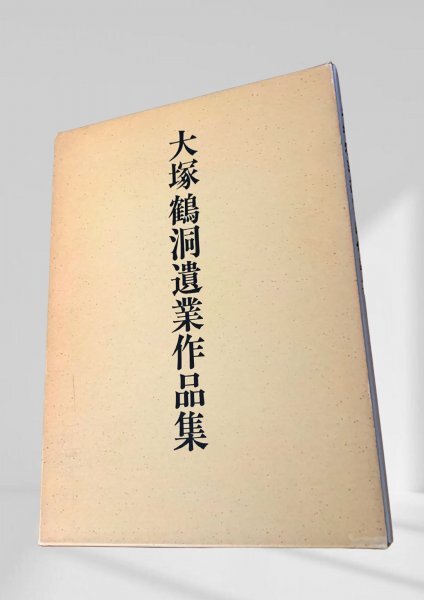 大塚鶴洞遺業作品集